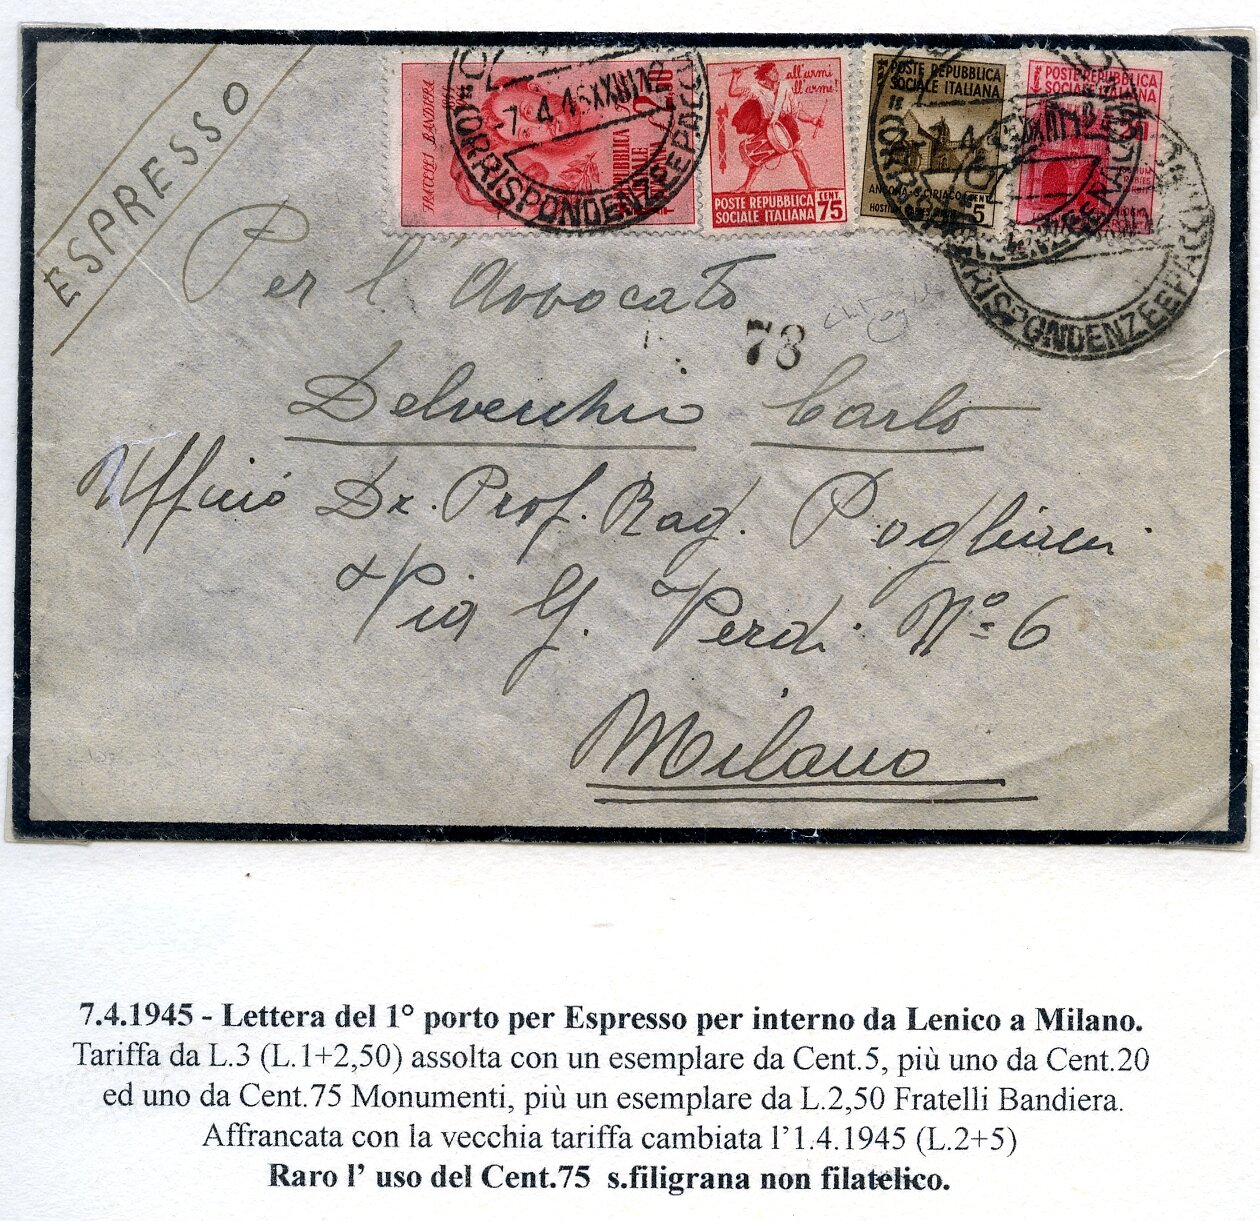 ESPRESSO
FRATELLI BANDIERA
7.4.45XXIII
CORRISPONDENZEEPACCHI
all'armi
all'arme!
POSTE REPUBBLICA
SOCIALE ITALIANA
CENT
75
POSTE REPUBBLICA
SOCIALE ITALIANA
5
POSTE REPUBBLICA
SOCIALE ITALIANA
RRISPONDENZEEPACC
Per l' Avvocato
78
Delvecchio Carlo
Ufficio Dr. Prof. Rag. Pogliani
Via G. Verdi Nº 6
Milano
7.4.1945 - Lettera del 1° porto per Espresso per interno da Lenico a Milano.
Tariffa da L.3 (L.1+2,50) assolta con un esemplare da Cent.5, più uno da Cent.20
ed uno da Cent.75 Monumenti, più un esemplare da L.2,50 Fratelli Bandiera.
Affrancata con la vecchia tariffa cambiata l'1.4.1945 (L.2+5)
Raro l' uso del Cent.75 s.filigrana non filatelico.